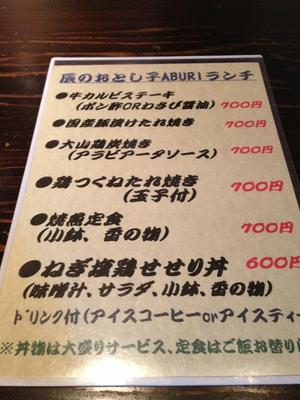 辰のおとし子ABURIランチ
●牛カルビステーキ
(ポン酢ORわさび醤油) 700円
●国産豚漬けたれ焼き 700円
●大山鶏炭焼き
(アラビアータソース) 700円
●鶏つくねたれ焼き 700円
(玉子付)
●焼魚定食 700円
(小鉢、香の物)
●ねぎ塩鶏せせり丼 600円
(味噌汁、サラダ、小鉢、香の物)
ドリンク付(アイスコーヒーorアイスティー
※丼物は大盛りサービス、定食はご飯お替り